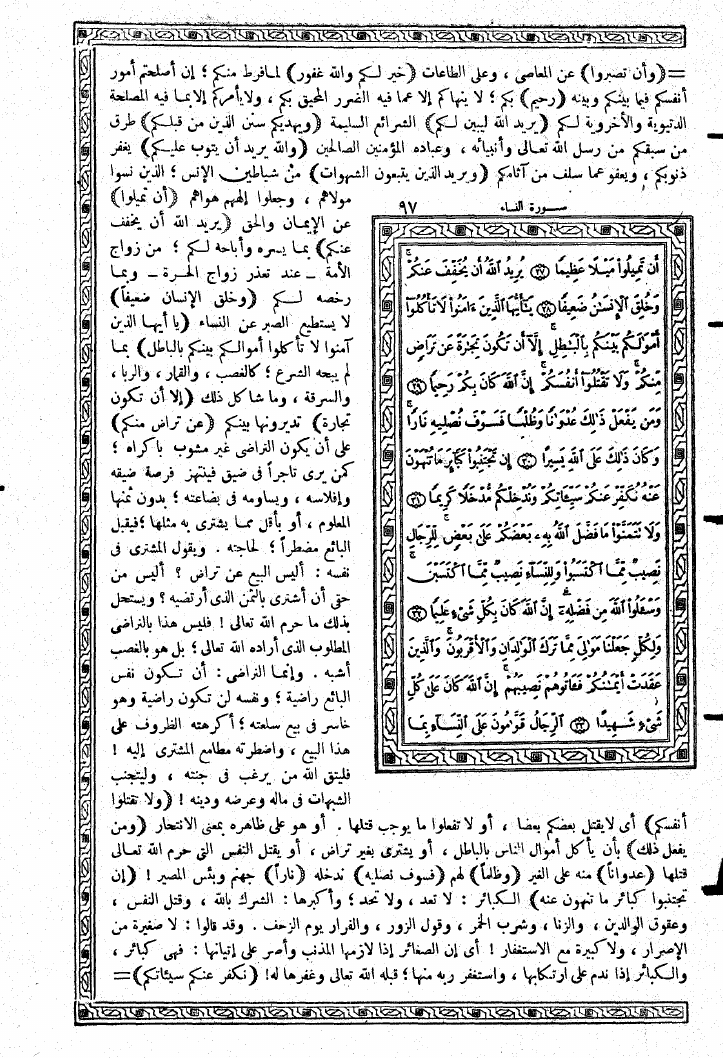 =(وأن تصبروا) عن المعاصى ، وعلى الطاعات (خير لكم والله غفور) لما فرط منكم ؛ إن أصلحتم أمور
أنفسكم فيما بينكم وبينه (رحيم) بكم ؛ لا ينهاكم إلا عما فيه الضرر المحيق بكم ، ولا يأمركم إلا بما فيه المصلحة
الدنيوية والأخروية لكم (يريد الله ليبين لكم) الشرائع السليمة (ويهديكم سنن الذين من قبلكم) طرق
من سبقكم من رسل الله تعالى وأنبيائه ، وعباده المؤمنين الصالحين (والله يريد أن يتوب عليكم) يغفر
ذنوبكم ، ويعفو عما سلف من آثامكم (ويريد الذين يتبعون الشهوات) من شياطين الإنس ؛ الذين نسوا
مولاهم ، وجعلوا إلههم هواهم (أن تميلوا)
عن الإيمان والحق (يريد الله أن يخفف
عنكم) بما يسره وأباحه لكم ؛ من زواج
الأمة ــ عند تعذر زواج الحرة ــ وبما
رخصه لكم (وخلق الإنسان ضعيفاً)
لا يستطيع الصبر عن النساء (يا أيها الذين
آمنوا لا تأكلوا أموالكم بينكم بالباطل) بما
لم يبحه الشرع ؛ كالغصب ، والقمار ، والربا ،
والسرقة ، وما شاكل ذلك (إلا أن تكون
تجارة) تديرونها بينكم (عن تراض منكم)
على أن يكون التراضى غير مشوب بإكراه ؛
كمن يرى تاجراً فى ضيق فينتهز فرصة ضيقه
وإفلاسه ، ويساومه فى بضاعته ؛ بدون ثمنها
المعلوم ، أو بأقل مما يشترى به مثلها ؛ فيقبل
البائع مضطراً ؛ لحاجته . ويقول المشترى فى
نفسه : أليس البيع عن تراض ؟ أليس من
حقى أن أشترى بالثمن الذى أرتضيه ؟ ويستحل
بذلك ما حرم الله تعالى ! فليس هذا بالتراضى
المطلوب الذى أراده الله تعالى ؛ بل هو بالغصب
أشبه . وإنما التراضى : أن تكون نفس
البائع راضية ؛ ونفسه لن تكون راضية وهو
خاسر فى بيع سلعته ؛ أكرهته الظروف على
هذا البيع ، واضطرته مطامع المشترى إليه !
فليتق الله من يرغب فى جنته ، وليتجنب
الشبهات فى ماله وعرضه ودينه ! (ولا تقتلوا
سورة النساء ٩٧
أَن تَمِيلُوا۟ مَيْلًا عَظِيمًا ﴿٢٧﴾ يُرِيدُ ٱللَّهُ أَن يُخَفِّفَ عَنكُمْ ۚ
وَخُلِقَ ٱلْإِنسَٰنُ ضَعِيفًا ﴿٢٨﴾ يَٰٓأَيُّهَا ٱلَّذِينَ ءَامَنُوا۟ لَا تَأْكُلُوٓا۟
أَمْوَٰلَكُم بَيْنَكُم بِٱلْبَٰطِلِ إِلَّآ أَن تَكُونَ تِجَٰرَةً عَن تَرَاضٍ
مِّنكُمْ ۚ وَلَا تَقْتُلُوٓا۟ أَنفُسَكُمْ ۚ إِنَّ ٱللَّهَ كَانَ بِكُمْ رَحِيمًا ﴿٢٩﴾
وَمَن يَفْعَلْ ذَٰلِكَ عُدْوَٰنًا وَظُلْمًا فَسَوْفَ نُصْلِيهِ نَارًا ۚ
وَكَانَ ذَٰلِكَ عَلَى ٱللَّهِ يَسِيرًا ﴿٣٠﴾ إِن تَجْتَنِبُوا۟ كَبَآئِرَ مَا تُنْهَوْنَ
عَنْهُ نُكَفِّرْ عَنكُمْ سَيِّـَٔاتِكُمْ وَنُدْخِلْكُم مُّدْخَلًا كَرِيمًا ﴿٣١﴾
وَلَا تَتَمَنَّوْا۟ مَا فَضَّلَ ٱللَّهُ بِهِۦ بَعْضَكُمْ عَلَىٰ بَعْضٍ ۚ لِّلرِّجَالِ
نَصِيبٌ مِّمَّا ٱكْتَسَبُوا۟ ۖ وَلِلنِّسَآءِ نَصِيبٌ مِّمَّا ٱكْتَسَبْنَ ۚ
وَسْـَٔلُوا۟ ٱللَّهَ مِن فَضْلِهِۦٓ ۗ إِنَّ ٱللَّهَ كَانَ بِكُلِّ شَىْءٍ عَلِيمًا ﴿٣٢﴾
وَلِكُلٍّ جَعَلْنَا مَوَٰلِىَ مِمَّا تَرَكَ ٱلْوَٰلِدَانِ وَٱلْأَقْرَبُونَ ۚ وَٱلَّذِينَ
عَقَدَتْ أَيْمَٰنُكُمْ فَـَٔاتُوهُمْ نَصِيبَهُمْ ۚ إِنَّ ٱللَّهَ كَانَ عَلَىٰ كُلِّ
شَىْءٍ شَهِيدًا ﴿٣٣﴾ ٱلرِّجَالُ قَوَّٰمُونَ عَلَى ٱلنِّسَآءِ بِمَا
أنفسكم) أى لا يقتل بعضكم بعضا ، أو لا تفعلوا ما يوجب قتلها . أو هو على ظاهره بمعنى الانتحار (ومن
يفعل ذلك) بأن يأكل أموال الناس بالباطل ، أو يشترى بغير تراض ، أو يقتل النفس التى حرم الله تعالى
قتلها (عدواناً) منه على الغير (وظلماً) لهم (فسوف نصليه) ندخله (ناراً) جهنم وبئس المصير ! (إن
تجتنبوا كبائر ما تنهون عنه) الكبائر : لا تعد ، ولا تحد ؛ وأكبرها : الشرك بالله ، وقتل النفس ،
وعقوق الوالدين ، والزنا ، وشرب الخمر ، وقول الزور ، والفرار يوم الزحف . وقد قالوا : لا صغيرة من
الإصرار ، ولا كبيرة مع الاستغفار ! أى إن الصغائر إذا لازمها المذنب وأصر على إتيانها : فهى كبائر ،
والكبائر إذا ندم على ارتكابها ، واستغفر ربه منها ؛ قبله الله تعالى وغفرها له ! (نكفر عنكم سيئاتكم)=